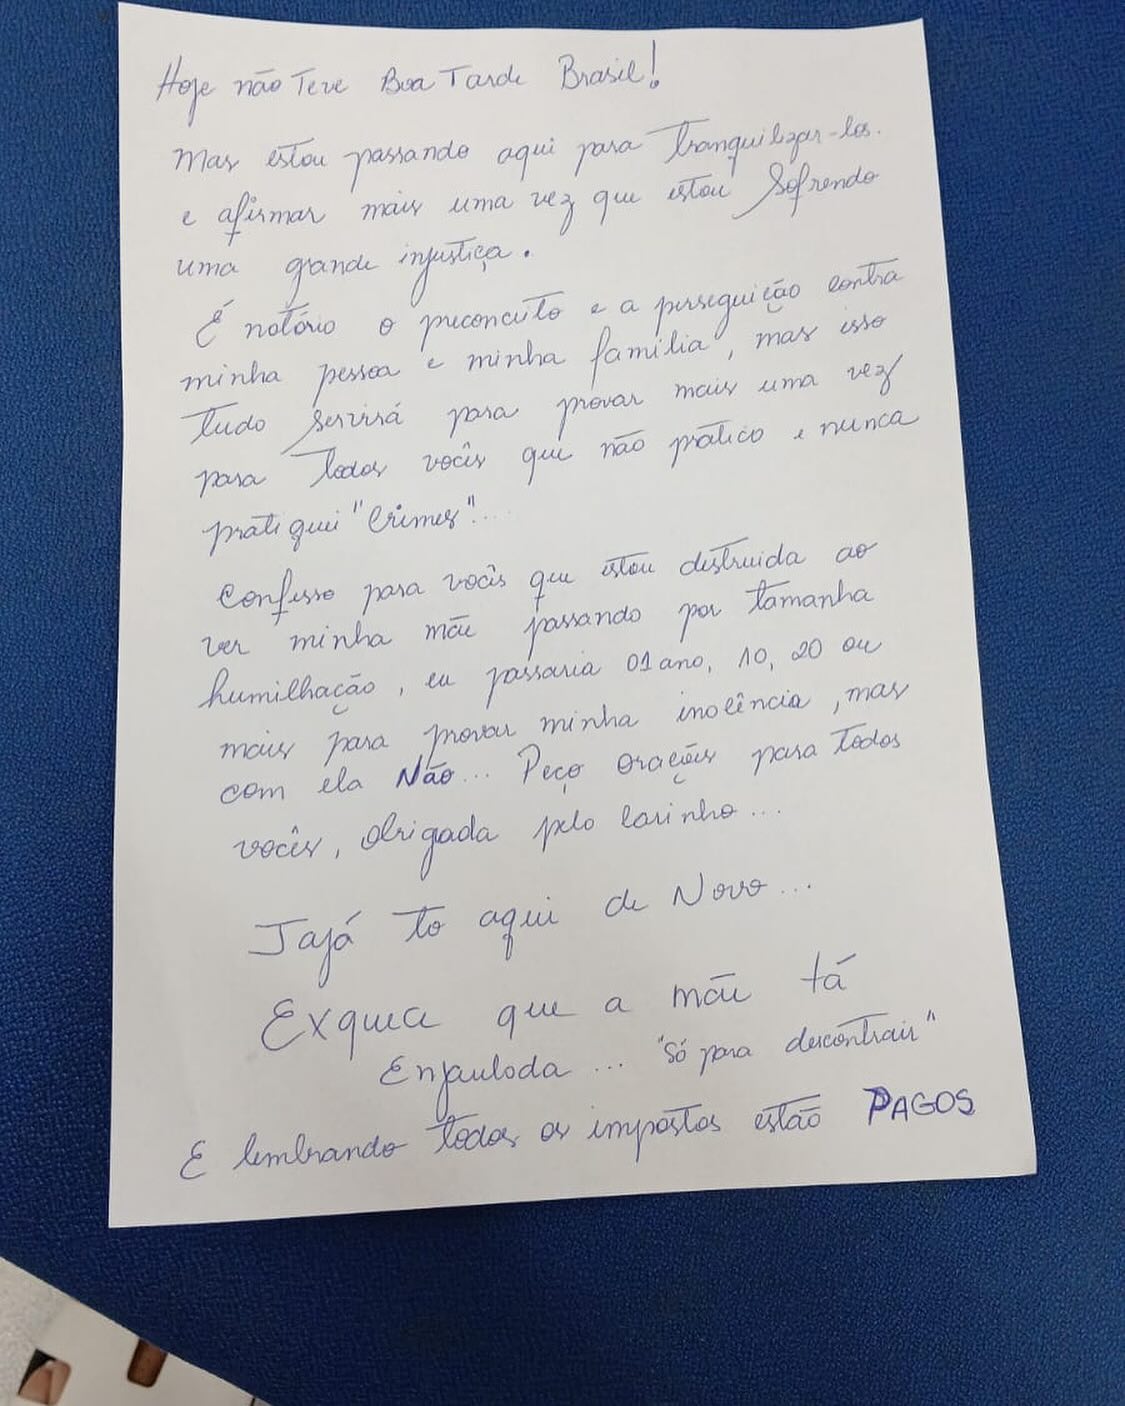 Hoje não Teve Boa Tarde Brasil!
Mas estou passando aqui para Tranquilizar-los.
e afirmar mais uma vez que estou Sofrendo
uma grande injustiça.
É notório o preconceito e a perseguição contra
minha pessoa e minha família, mas isso
Tudo Servirá para provar mais uma vez
para Todos vocês que não pratico e nunca
pratiquei "Crimes"...
Confesso para vocês que estou destruida ao
ver minha mãe passando por tamanha
humilhação, eu passaria 01 ano, 10, 20 ou
mais para provar minha inocência, mas
com ela Não... Peço orações para todos
vocês, Obrigada pelo Carinho...
Jajá to aqui de Novo...
Exquea que a mãe tá
Enjauloda... "Só para descontrair"
E lembrando todos os impostos estão PAGOS